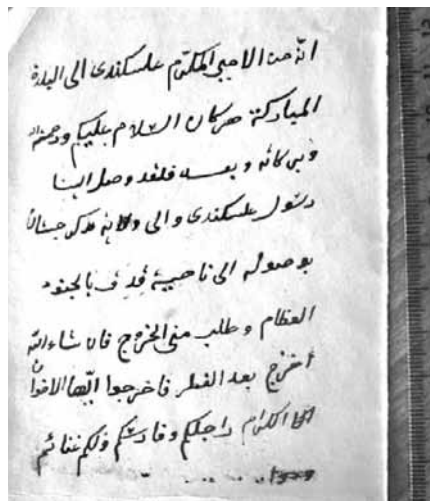 انه من الاحبي المكرم علسكندى الى البلدة
المباركة هركان السلام عليكم ورحمة الله
وبركاته وبعده فلقد وصل الينا
رسول علسكندى والى ولاية
بوصوله الى ناحية بالجنود
العظام وطلب منى الخروج فان شاء الله
أخرج بعد الفطر فاخرجوا ايّها الاخوان
الكرام راجلكم وفارسكم ولكم غنائم